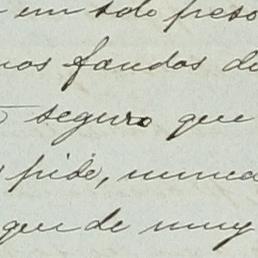 en un solo peso
nos fondos de
seguro que
pide, nunca
que de muy